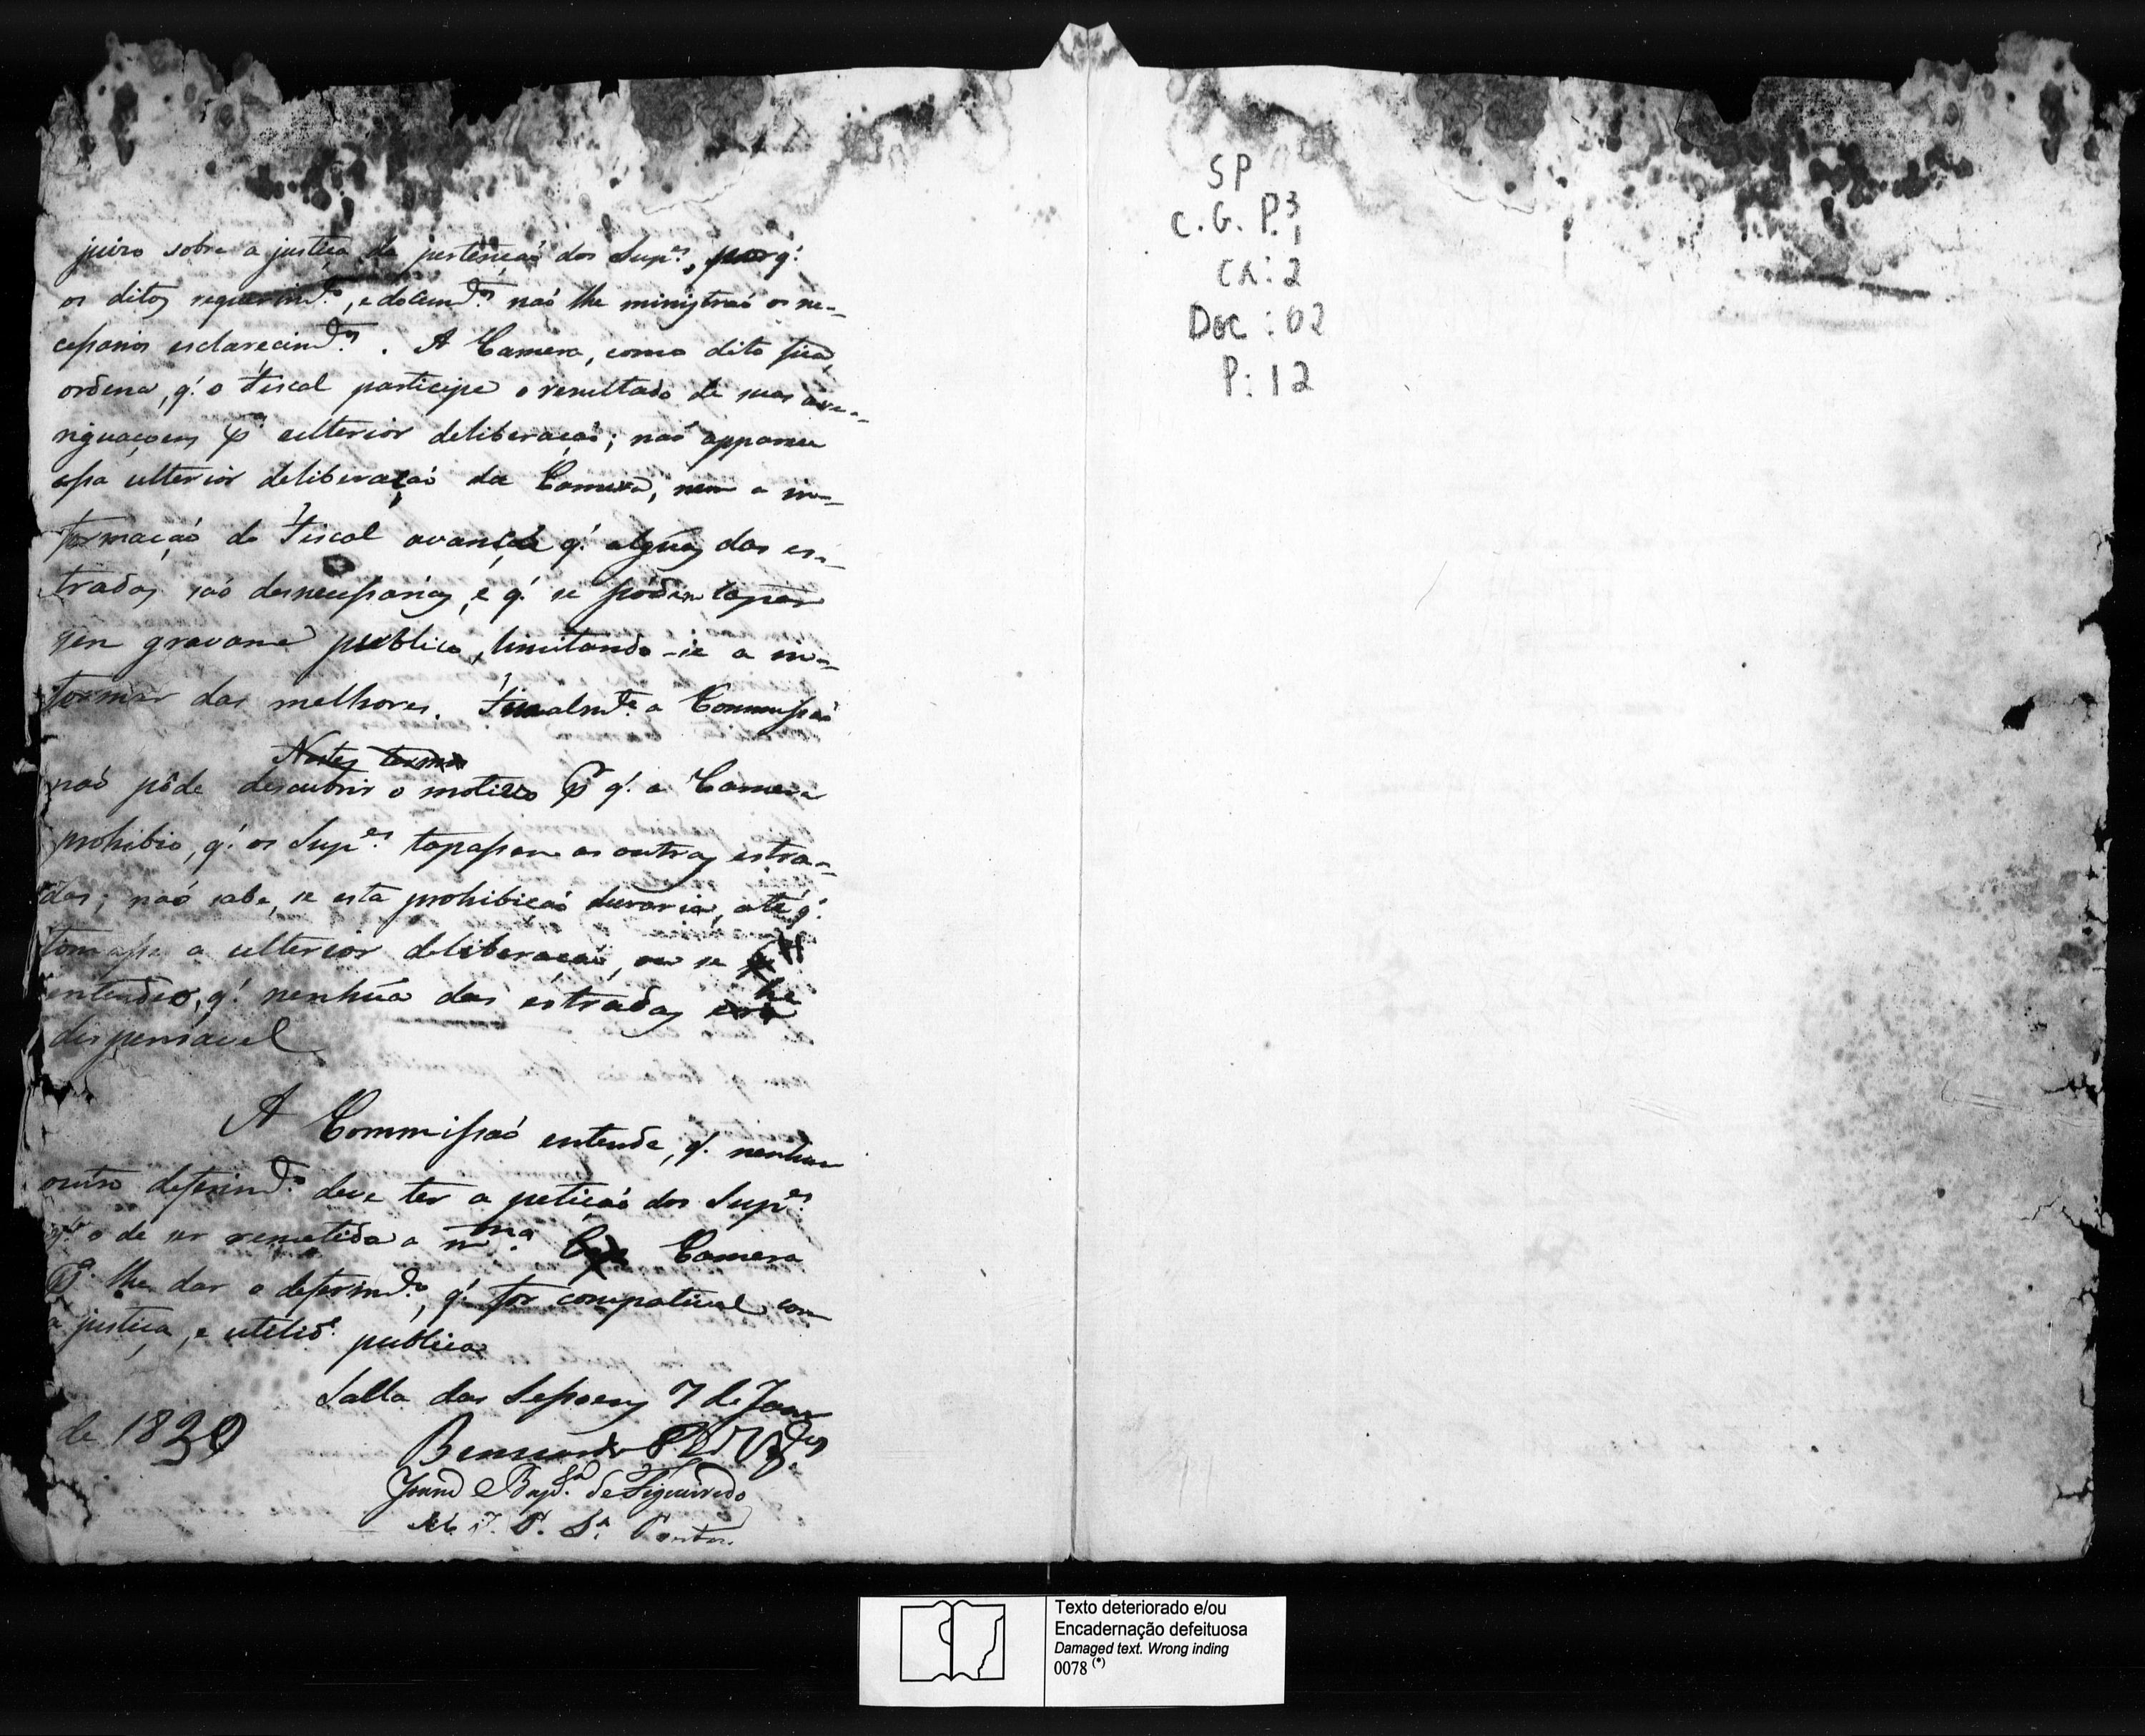 juizo sobre a justiça da pertenção dos Sup.es, porq.'
os ditos requerim.tos, e docum.tos naõ lhe ministraõ os ne-
cessarios esclarecim.tos. A Camera, como dito fica,
ordena, q.' o Fiscal participe o resultado de suas ave-
riguaçoens p.a ulterior deliberaçaõ; naõ apparece
essa ulterior deliberaçaõ da Camera, nem a in-
formaçaõ do Fiscal avança q.' algũas das es-
tradas saõ desnecessarias, e q.' se pódem tapar
sem gravame publico, limitando-se a in-
formar das melhores. Finalm.te a Commissaõ
Nestes termos
naõ póde descubrir o motivo p.r q.' a Camera
prohibio, q.' os Sup.es tapassem as outras estra-
das; naõ sabe, se esta prohibiçaõ duraria, até q.'
tomasse a ulterior deliberaçaõ, ou se
entendeo, q.' nenhũa das estradas he
dispensavel
A Commissaõ entende, q.' nenhum
outro deferim.to deve ter a petiçaõ dos Sup.es
q' o de ser remetida a m.ma Camera
p.a lhe dar o deferim.to, q.' for compativel com
a justiça, e utelid.e publica
Salla das Sessoens 7 de Janr
de 1830
de Figueiredo
SP
C. G. P. 3
1
CX: 2
Doc: 02
P: 12
Texto deteriorado e/ou
Encadernação defeituosa
Damaged text. Wrong inding
0078 (*)